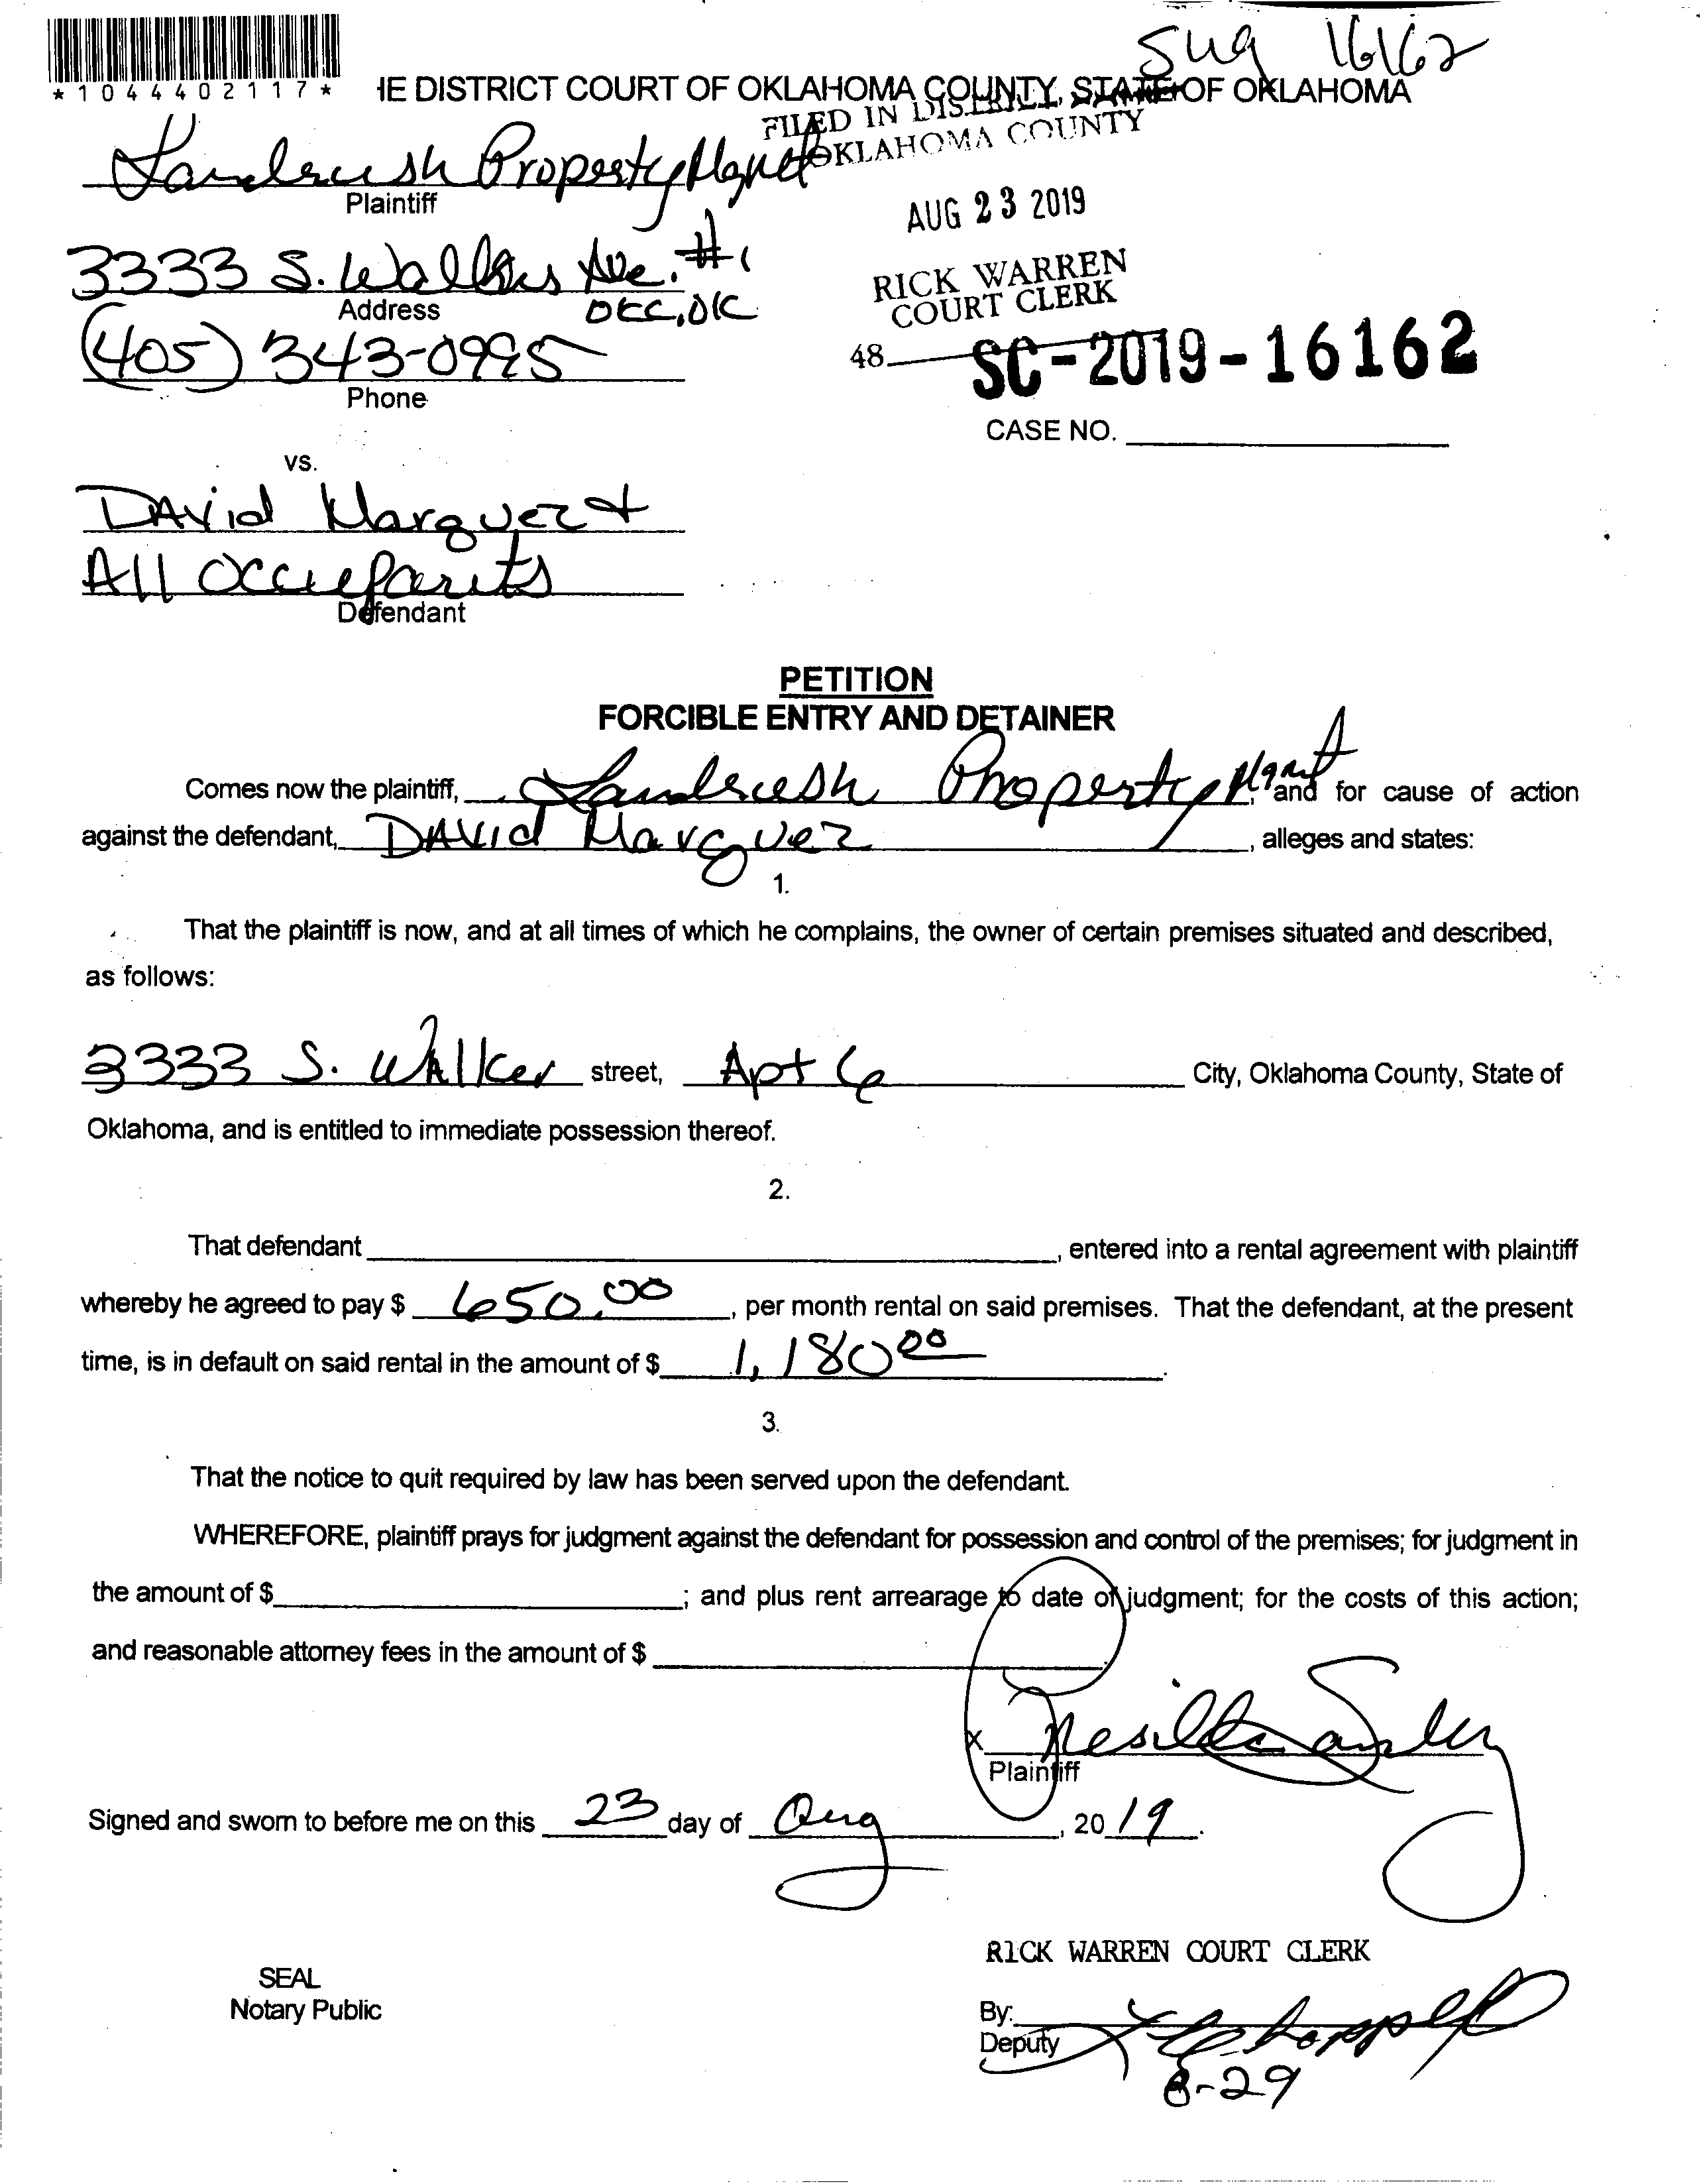 Sug 16162
*1044402117* IE DISTRICT COURT OF OKLAHOMA COUNTY, STATE OF OKLAHOMA
FILED IN DISTRICT
OKLAHOMA COUNTY
Landrush Property Mgmt
Plaintiff
AUG 23 2019
3333 S. Walker Ave. #1
Address
OKC, OK
RICK WARREN
COURT CLERK
(405) 343-0995
Phone
48 SC-2019-16162
CASE NO.
vs.
David Marquez &
All Occupants
Defendant
PETITION
FORCIBLE ENTRY AND DETAINER
Comes now the plaintiff, Landrush Property Mgmt, and for cause of action
against the defendant, David Marquez, alleges and states:
1.
That the plaintiff is now, and at all times of which he complains, the owner of certain premises situated and described,
as follows:
3333 S. Walker street, Apt 6 City, Oklahoma County, State of
Oklahoma, and is entitled to immediate possession thereof.
2.
That defendant , entered into a rental agreement with plaintiff
whereby he agreed to pay $ 650.00, per month rental on said premises. That the defendant, at the present
time, is in default on said rental in the amount of $ 1,180 00.
3.
That the notice to quit required by law has been served upon the defendant.
WHEREFORE, plaintiff prays for judgment against the defendant for possession and control of the premises; for judgment in
the amount of $ ; and plus rent arrearage to date of judgment; for the costs of this action;
and reasonable attorney fees in the amount of $ .
x
Plaintiff
Signed and sworn to before me on this 23 day of Aug, 2019.
RICK WARREN COURT CLERK
SEAL
Notary Public
By:
Deputy
8-29